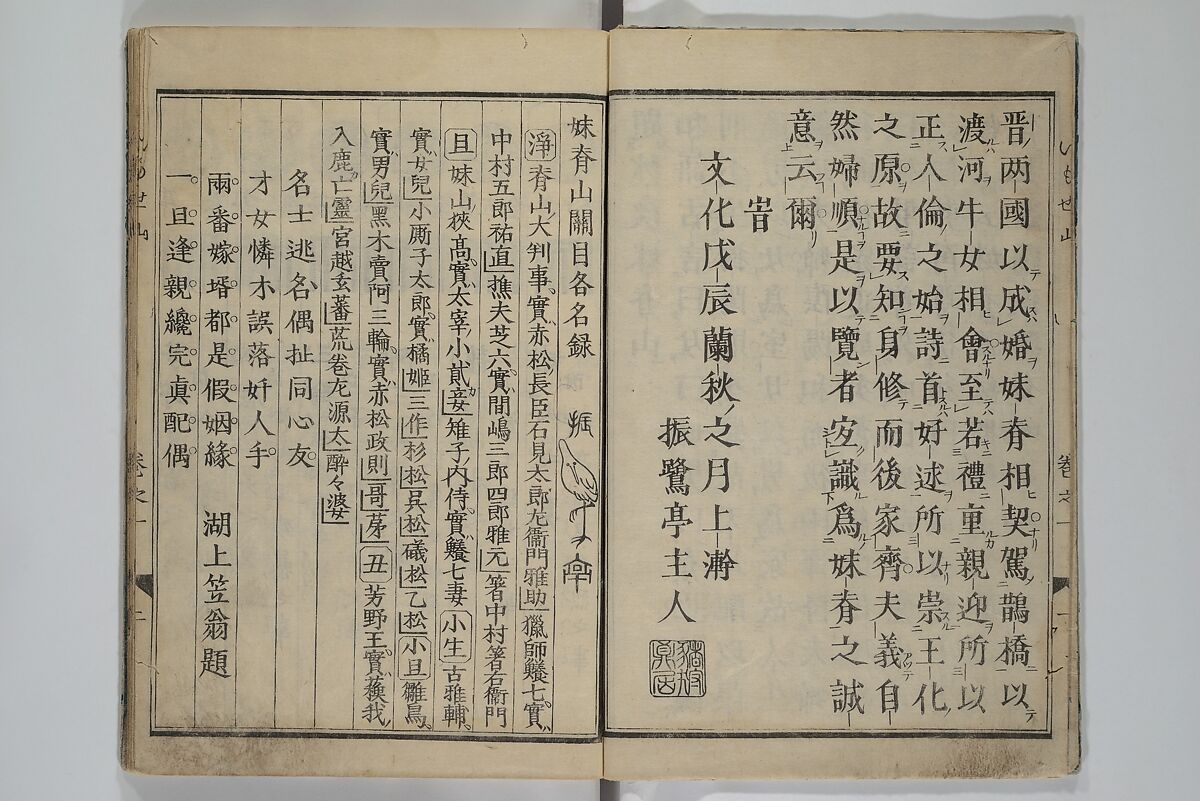 晋両國以成婚妹脊相契駕鵲橋以
渡河牛女相會至若禮重親迎所以
正人倫之始詩首好逑所以崇王化
之原故要知身修而後家齊夫義自
然婦順是以覽者宜識爲妹脊之誠
意云爾
旹
文化戊辰蘭秋之月上澣
振鷺亭主人
妹脊山關目各名録 振鷺亭
淨 脊山大判事實赤松長臣石見太郎左衞門雅助 獵師鱶七實
中村五郎祐直 樵夫芝六實間嶋三郎四郎雅元 箸中村箸右衞門
旦 妹山後髙實太宰小貳妾 雉子内侍實鱶七妻 小生 古雅輔
實女兒 小厮子太郎實橘姫 三作 杉松 呉松 礒松 乙松 小旦 雛鳥
實男兒 黑木賣阿三輪實赤松政則 哥茅 丑 芳野王實蘓我
入鹿亡靈 宮越玄蕃 荒卷九源太 酔々婆
名士逃名偶扯同心友
才女憐才誤落奸人手
兩番嫁壻都是假姻緣
一旦逢親纔完眞配偶 湖上笠翁題
いもせ山 卷之一